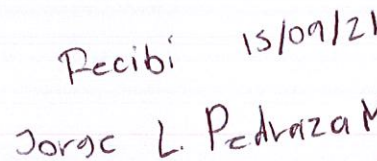 Recibí 15/09/21
Jorge L. Pedraza M